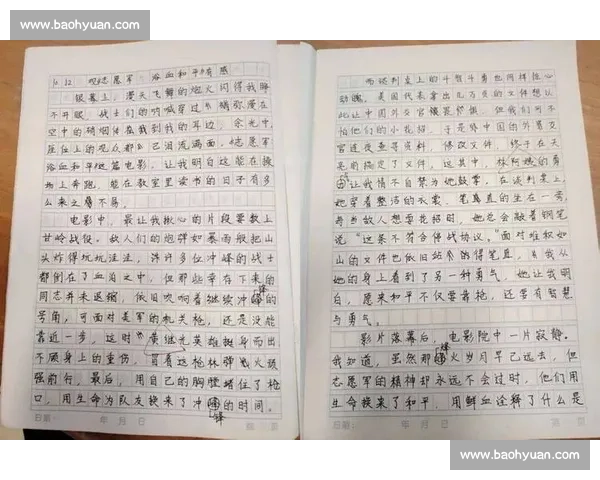 www.baohyuan.com
10.12 观志愿军《浴血和平》有感
银幕上,漫天飞舞的炮火闪得我睁
不开眼,战士们的呐喊穿过弥漫在
空中的硝烟传到我的耳边,余光中,
座位上的观众都已泪流满面。《志愿军
浴血和平》这篇电影,让我明白这能在操
场上奔跑,能在教室里读书的日子有多
么来之不易。
电影中,最让我揪心的片段要数上
甘岭战役。敌人们的炮弹如暴雨般把山
头炸得坑坑洼洼,许多位冲锋的战士
都倒在了血泊之中,但那些幸存下来的
同志并未退缩,依旧吹响着继续冲锋的
号角,可面对美军的机关枪,还是没能
靠近一步,这时,黄继光英雄挺身而出
不顾身上的重伤,冒着这枪林弹火顽
强前行,最后,用自己的胸膛堵住了枪
口,用生命为队友换来了冲锋的时间。
日期: 年 月 日 第 页
而谈判桌上的斗智斗勇也同样惊心
动魄。美国代表拿出几万页的文件想以
此让中国外交官,但我们可不
怕他们的小花招,于是中国的外交
官连夜查寻资料,修改文件,终于在天
亮前搞定了文件,这其中,林阿姨的勇
让我情不自禁为她鼓掌,在谈判桌上,
她穿着整洁的衣裳,笔直的坐在一旁,
每当敌人想要花招时,她总会敲着钢笔
说“这条不符合停战协议。”面对堆积如
山的文件也依旧站的得笔直,我从
她的身上看到了另一种勇气,她让我明
白,原来和平不仅要靠枪,还要有智慧
与勇气。
影片落幕后,电影院中一片寂静。
我知道,虽然那烽火岁月早已远去,但
志愿军的精神却永远不会过时,他们用
生命换来了和平,用鲜血诠释了什么是
日期: 年 月 日 第 页
www.baohyuan.com